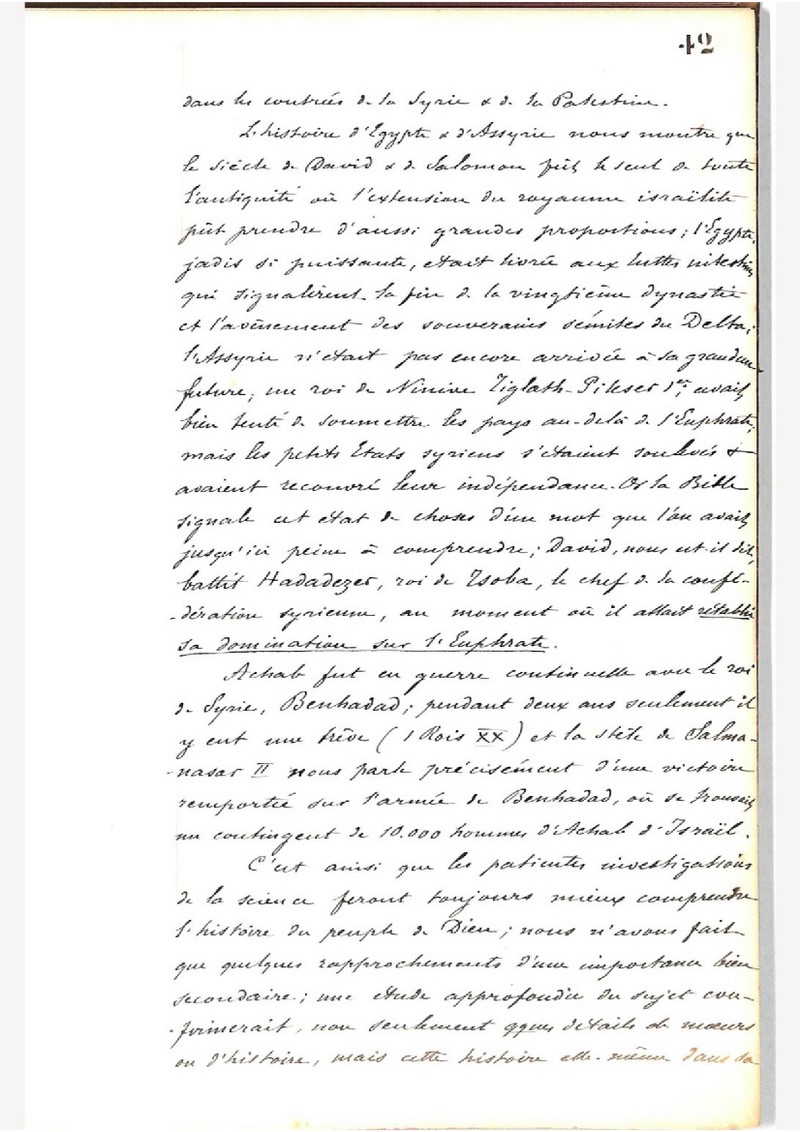 42
dans les contrées de la Syrie & de la Palestine.
L'histoire d'Egypte & d'Assyrie nous montre que
le siècle de David & de Salomon fût le seul de toute
l'antiquité où l'extension du royaume israëlite
pût prendre d'aussi grandes proportions; l'Egypte,
jadis si puissante, était livrée aux luttes intestines
qui signalèrent la fin de la vingtième dynastie
et l'avènement des souverains sémites du Delta;
l'Assyrie n'était pas encore arrivée à sa grandeur
future; un roi de Ninive Tiglath-Pileser 1er, avait
bien tenté de soumettre les pays au-delà de l'Euphrate,
mais les petits Etats syriens s'étaient soulevés &
avaient recouvré leur indépendance. Or la Bible
signale cet état de choses d'un mot que l'on avait
jusqu'ici peine à comprendre; David, nous est-il dit,
battit Hadadezer, roi de Tsoba, le chef de la confé-
-dération syrienne, au moment où il allait rétablir
sa domination sur l'Euphrate.
Achab fut en guerre continuelle avec le roi
de Syrie, Benhadad; pendant deux ans seulement il
y eut une trêve (1 Rois XX) et la stèle de Salma-
-nasar II nous parle précisément d'une victoire
remportée sur l'armée de Benhadad, où se trouvait
un contingent de 10.000 hommes d'Achab d'Israël.
C'est ainsi que les patientes investigations
de la science feront toujours mieux comprendre
l'histoire du peuple de Dieu; nous n'avons fait
que quelques rapprochements d'une importance bien
secondaire; une étude approfondie du sujet con-
-firmerait, non seulement qques détails de mœurs
ou d'histoire, mais cette histoire elle-même dans sa